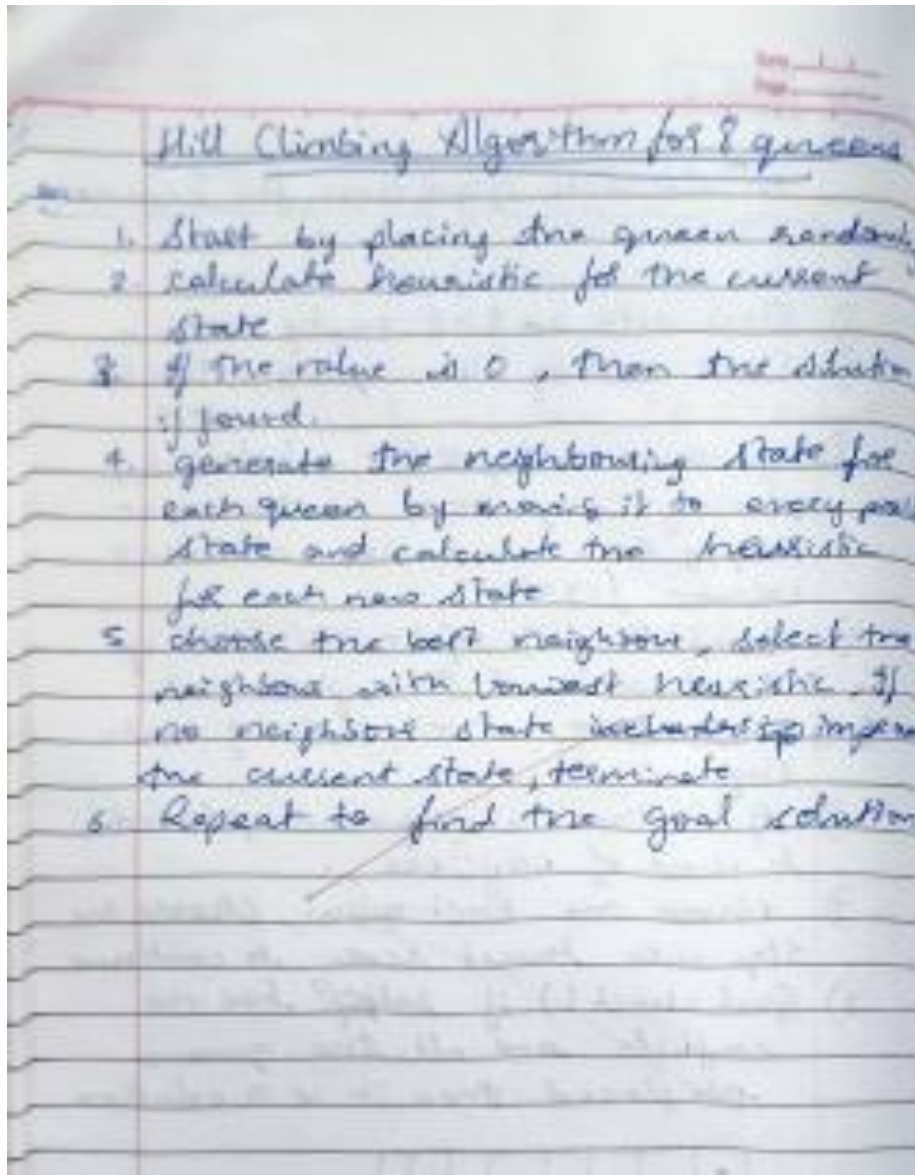 Date
Page
Hill Climbing Algorithm for 8 queens
1. Start by placing the queen randomly
2 calculate heuristic for the current
state
3. if the value is 0, then the solution
is found.
4. generate the neighbouring state for
each queen by moving it to every
state and calculate the heuristic
for each new state
5 choose the best neighbour, select the
neighbour with lowest heuristic. If
no neighbour state
the current state, terminate
6. Repeat to find the goal solution